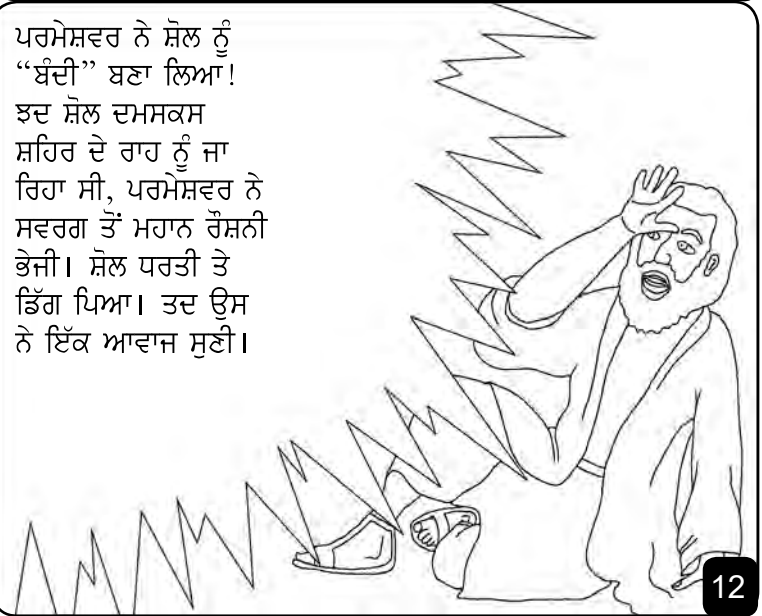 ਪਰਮੇਸ਼ਵਰ ਨੇ ਸ਼ੋਲ ਨੂੰ
“ਬੰਦੀ” ਬਣਾ ਲਿਆ!
ਝਦ ਸ਼ੋਲ ਦਮਸਕਸ
ਸ਼ਹਿਰ ਦੇ ਰਾਹ ਨੂੰ ਜਾ
ਰਿਹਾ ਸੀ, ਪਰਮੇਸ਼ਵਰ ਨੇ
ਸਵਰਗ ਤੋਂ ਮਹਾਨ ਰੌਸ਼ਨੀ
ਭੇਜੀ। ਸ਼ੋਲ ਧਰਤੀ ਤੇ
ਡਿੱਗ ਪਿਆ। ਤਦ ਉਸ
ਨੇ ਇੱਕ ਆਵਾਜ ਸੁਣੀ।
12